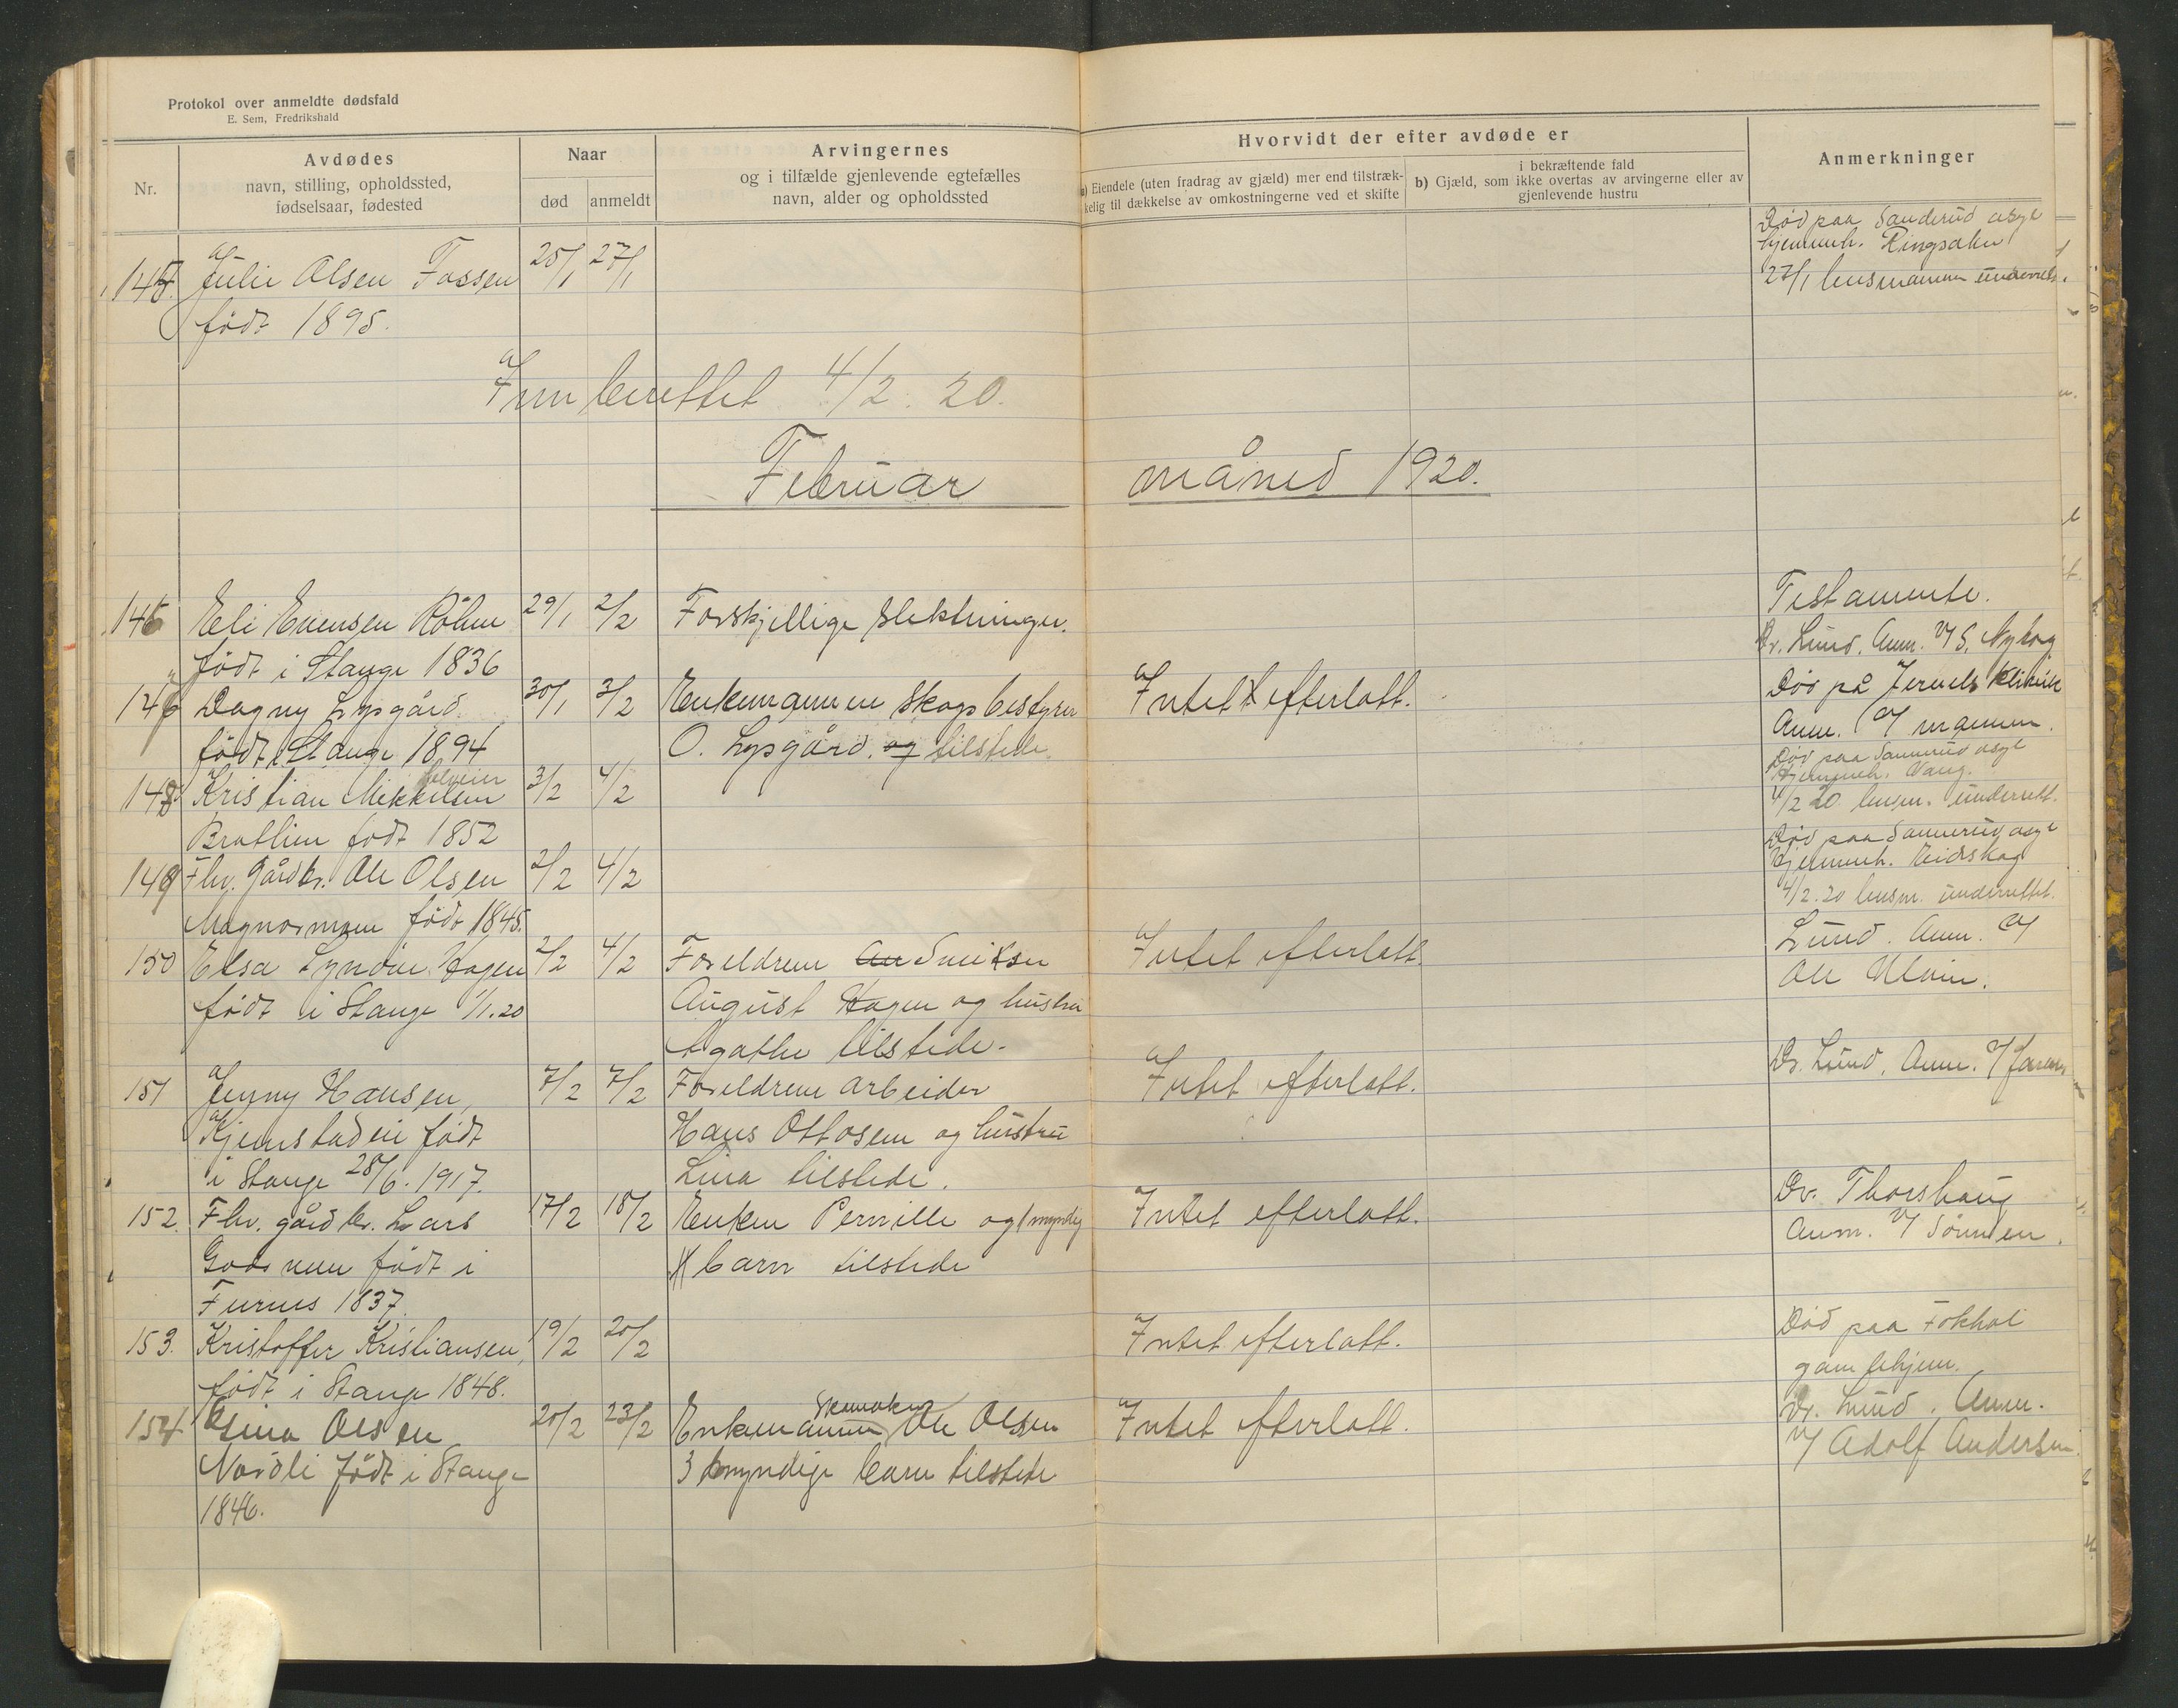 Protokol over anmeldte dødsfald
E. Sem, Fredrikshald
Nr.
Avdødes
navn, stilling, opholdssted,
fødselsaar, fødested
Naar
død
anmeldt
Arvingernes
og i tilfælde gjenlevende egtefælles
navn, alder og opholdssted
Hvorvidt der efter avdøde er
a) Eiendele (uten fradrag av gjæld) mer end tilstræk-
kelig til dækkelse av omkostningerne ved et skifte
i bekræftende fald
b) Gjæld, som ikke overtas av arvingerne eller av
gjenlevende hustru
Anmerkninger
145. Julie Olsen Fossen 25/1 27/1
født 1895.
Død paa Sanderud asyl
hjemmeh. Ringsaker
27/1 lensmannen underrett.
Innberettet 4/2. 20.
Februar måned 1920.
146 Eli Evensen Röhne 29/1 2/2 Forskjellige slektninger.
født i Stange 1836
Testamente.
Dr. Lund. Anm. S. Nyhag
146 Dagny Lysgård 30/1 3/2 Enkemannen skogbestyrer Intet efterlatt.
født i Stange 1894 O. Lysgård. og tilstede.
Død på Jervels Klinik
Anm. af mannen.
148. Kristian Mikkelsen 3/2 4/2
Bratlien født 1852
Død paa Sannerud asyl
Hjemmeh. Vang.
4/2 20 lensm. underrett.
149 Fhv. gårdbr. Ole Olsen 2/2 4/2
Magnormoen født 1845.
Død paa Sannerud asyl
Hjemmeh. Eidskog
4/2.20 lensm. underrettet.
150 Elsa Synøve Hagen 2/2 4/2 Foreldrene Sneikker Intet efterlatt.
født i Stange 1/1.20 August Hagen og hustru
Agathe tilstede.
Lund. Anm. af
Ole Ulvin.
151 Jenny Hansen, 7/2 7/2 Foreldrene arbeider Intet efterlatt.
Kjemstadeie født Hans Ottosen og hustru
i Stange 28/6. 1917. Lina tilstede.
Dr. Lund. Anm. af faren
152. Fhv. gårdbr. Lars 17/2 18/2 Enken Pernille og 1 myndig Intet efterlatt.
Godsmoen født i barn tilstede
Furnes 1837.
Dr. Thorshaug
Anm. af sönnen.
153. Kristoffer Kristiansen, 19/2 20/2 Intet efterlatt.
født i Stange 1848.
Død paa Fokhol
gamlehjem.
154 Gina Olsen 20/2 23/2 Enkemannen Skomaker Ole Olsen Intet efterlatt.
Nordli født i Stange 3 myndige barn tilstede
1846.
Dr. Lund. Anm.
af Adolf Andersen.